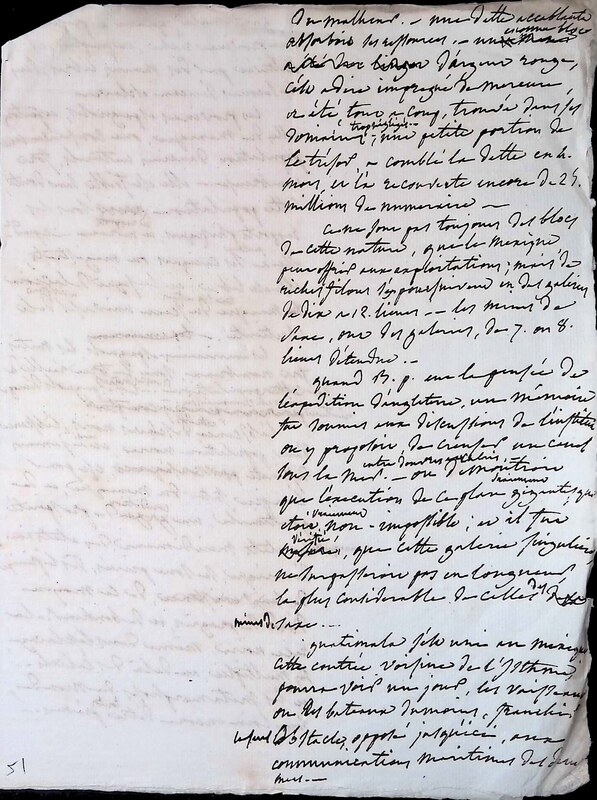 du malheur. — une dette accablante
absorbois ses ressources. — un énorme bloc
d'argent rouge,
c'est a dire impregné de mercure,
a été tout a coup, trouvé dans ses
domaines; une petite portion de
le trésor a comblé la dette en
mois, et l'a recouverte encore de 25.
millions de numeraire —
ce ne sont pas toujours des blocs
de cette nature, que le mexique
peut offrir aux exploitations; mais de
riches filons s'y poursuivent en des galeries
de dix a 12. lieues — les mines de
Saxe, ont des galeries, de 7. ou 8.
lieues d'étendue. —
quand B. p. eut la pensée de
l'expédition d'angleterre, un mémoire
fut soumis aux discussions de l'institut
on y proposoit de creuser un canal
sous la mer. — entre douvres et calais. on démontroit
que l'exécution de ce plan gigantesque
etoit vraiment non-impossible; et il fut
vérifié, que cette galerie singuliere
ne surpasseroit pas en longueur
la plus considerable de celles des
mines de Saxe. —
guatimala s'est unie au mexique
cette contrée voisine de l'isthme,
pourra voir un jour, les vaisseaux
ou les bateaux du moins, franchir
le seul obstacle, opposé jusqu'ici, aux
communications maritimes des deux
mers. —
51